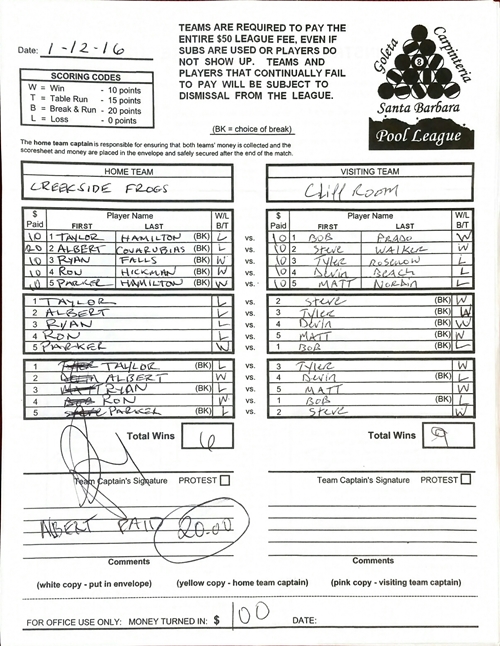 Date: 1-12-16
TEAMS ARE REQUIRED TO PAY THE
ENTIRE $50 LEAGUE FEE, EVEN IF
SUBS ARE USED OR PLAYERS DO
NOT SHOW UP. TEAMS AND
PLAYERS THAT CONTINUALLY FAIL
TO PAY WILL BE SUBJECT TO
DISMISSAL FROM THE LEAGUE.
(BK = choice of break)
Goleta
Carpinteria
8
Santa Barbara
Pool League
SCORING CODES
W = Win - 10 points
T = Table Run - 15 points
B = Break & Run - 20 points
L = Loss - 0 points
The home team captain is responsible for ensuring that both teams' money is collected and the
scoresheet and money are placed in the envelope and safely secured after the end of the match.
HOME TEAM VISITING TEAM
CREEKSIDE FROGS Cliff Room
$ Paid Player Name FIRST LAST W/L B/T $ Paid Player Name FIRST LAST W/L B/T
10 1 TAYLOR HAMILTON (BK) L vs. 10 1 BOB PRADO W
20 2 ALBERT COVARUBIAS (BK) L vs. 2 STEVE WALKER W
10 3 RYAN FALLS (BK) W vs. 10 3 TYLER L
10 4 RON HICKMAN (BK) W vs. 10 4 DEVIN L
10 5 PARKER HAMILTON (BK) W vs. 10 5 MATT L
1 TAYLOR L vs. 2 STEVE (BK) W
2 ALBERT L vs. 3 TYLER (BK) W
3 RYAN L vs. 4 DEVIN (BK) W
4 RON L vs. 5 MATT (BK) W
5 PARKER W vs. 1 BOB (BK) L
1 TAYLOR (BK) L vs. 3 TYLER W
2 ALBERT W vs. 4 DEVIN (BK) L
3 RYAN (BK) L vs. 5 MATT W
4 RON W vs. 1 BOB (BK) L
5 PARKER (BK) L vs. 2 STEVE W
Total Wins 6 Total Wins 9
Team Captain's Signature PROTEST Team Captain's Signature PROTEST
ALBERT PAID 20.00
Comments Comments
(white copy - put in envelope) (yellow copy - home team captain) (pink copy - visiting team captain)
FOR OFFICE USE ONLY: MONEY TURNED IN: $ 100 DATE: